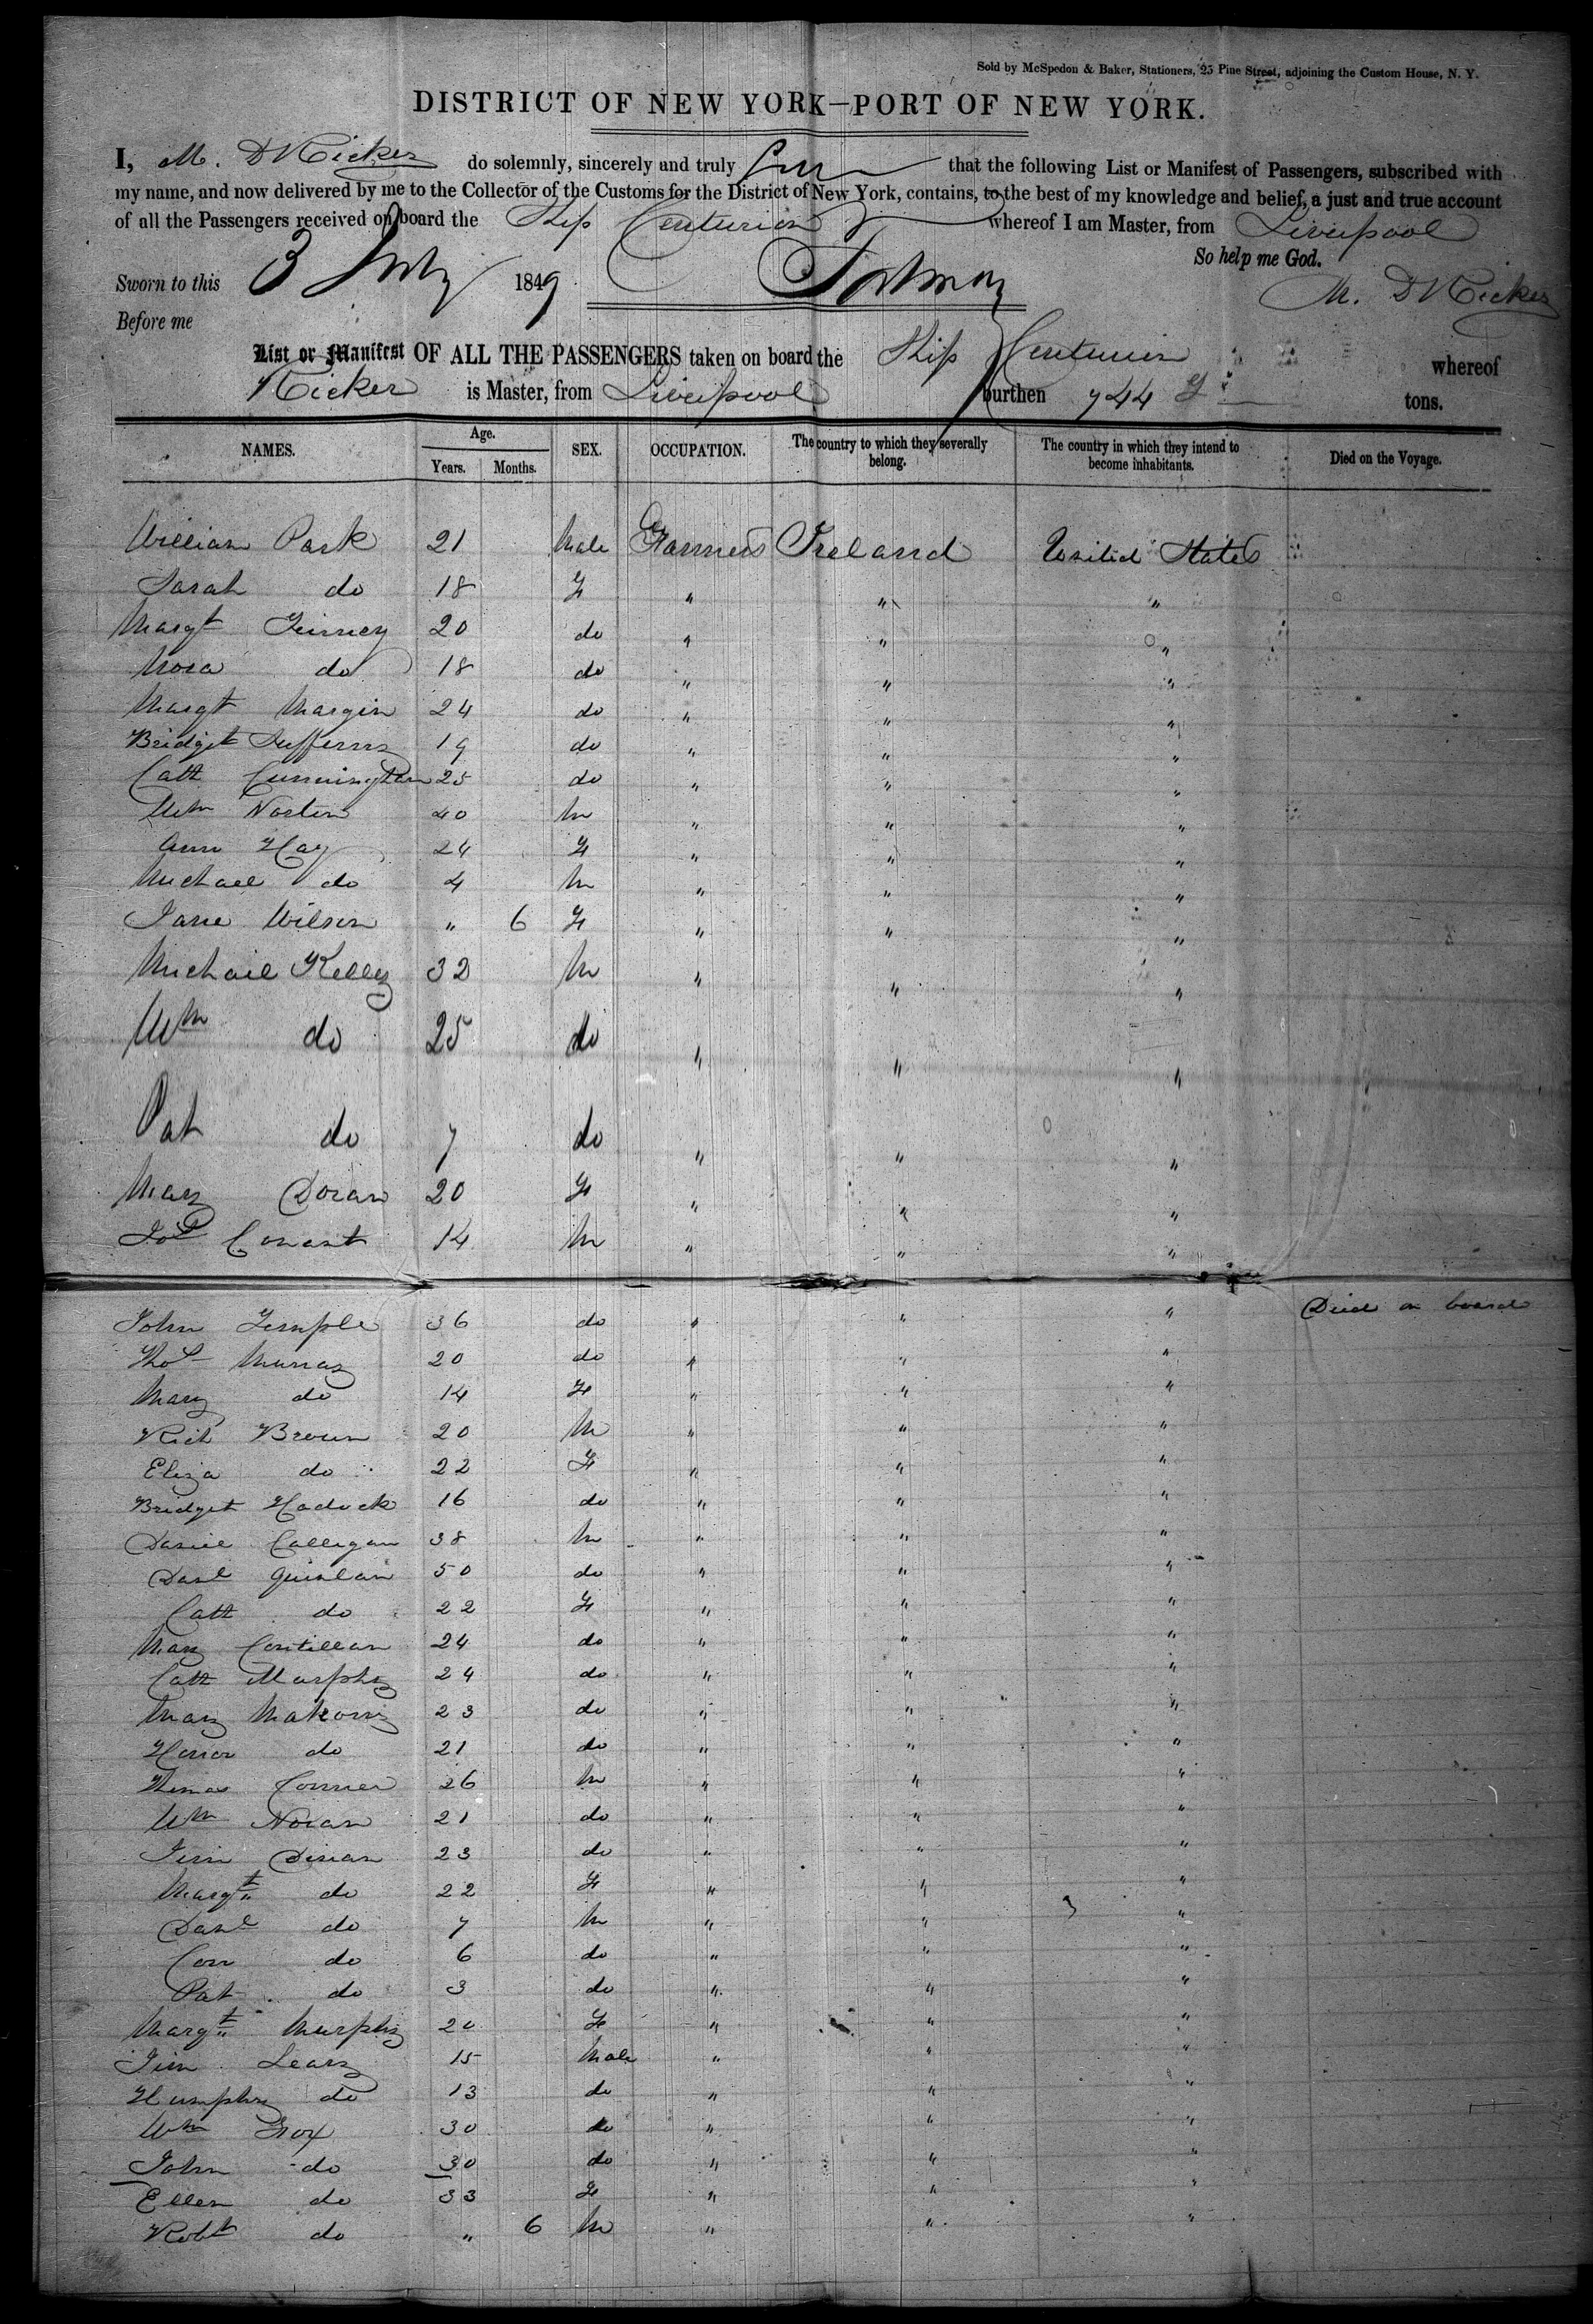 Sold by McSpedon & Baker, Stationers, 25 Pine Street, adjoining the Custom House, N. Y.
DISTRICT OF NEW YORK—PORT OF NEW YORK.
I, M. D Ricker do solemnly, sincerely and truly that the following List or Manifest of Passengers, subscribed with
my name, and now delivered by me to the Collector of the Customs for the District of New York, contains, to the best of my knowledge and belief, a just and true account
of all the Passengers received on board the Ship Centurion whereof I am Master, from Liverpool
So help me God.
Sworn to this 3 July 1849 M. D Ricker
Before me
List or Manifest OF ALL THE PASSENGERS taken on board the Ship Centurion whereof
Ricker is Master, from Liverpool burthen 744 tons.
NAMES. Age. Years. Months. SEX. OCCUPATION. The country to which they severally belong. The country in which they intend to become inhabitants. Died on the Voyage.
William Park 21 Male Farmers Ireland United States
Sarah do 18 F " " "
Margt 20 do " " "
Nora do 18 do " " "
Margt Margin 24 do " " "
Bridget 19 do " " "
Cath Cunningham 25 do " " "
Wm Norten 40 M " " "
Ann Hay 24 F " " "
Michael do 4 M " " "
Jane Wilson " 6 F " " "
Michail Kelly 32 M " " "
Wm do 25 do " " "
Pat do 7 do " " "
Mary Doran 20 F " " "
Conant 14 M " " "
John Temple 36 do " " " Died on board
Thos Murray 20 do " " "
Mary do 14 F " " "
Rich Brown 20 M " " "
Eliza do 22 F " " "
Bridget Hadock 16 do " " "
Daniel Calligan 38 M " " "
Danl Quinlan 50 do " " "
Cath do 22 F " " "
Mary Contillan 24 do " " "
Cath Murphy 24 do " " "
Mary Mahony 23 do " " "
Honor do 21 do " " "
Thomas Conner 26 M " " "
Wm Noran 21 do " " "
Jim Dinan 23 do " " "
Margt do 22 F " " "
Danl do 7 M " " "
Con do 6 do " " "
Pat do 3 do " " "
Margt Murphy 20 F " " "
Jim Leary 15 Male " " "
Humphry do 13 do " " "
Wm Fox 30 do " " "
John do 30 do " " "
Ellen do 33 F " " "
Robt do " 6 M " " "